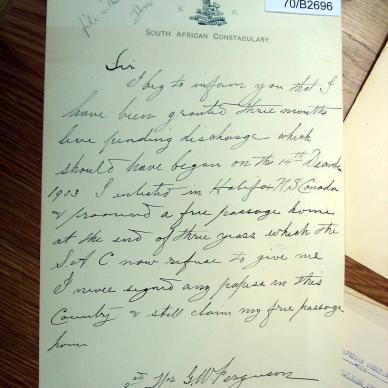 70/B2696
file with
E R
SOUTH AFRICAN CONSTABULARY.
Sir
I beg to inform you that I
have been granted three months
leve pending discharge which
should have began on the 14th Decmber
1903 I enlisted in Halifax N.S Canada
& proomerd a free passage home
at the end of three years which the
S.A.C now refuse to give me
I never signed any papers in this
Country & still claim my free passage
home
G.W. Ferguson